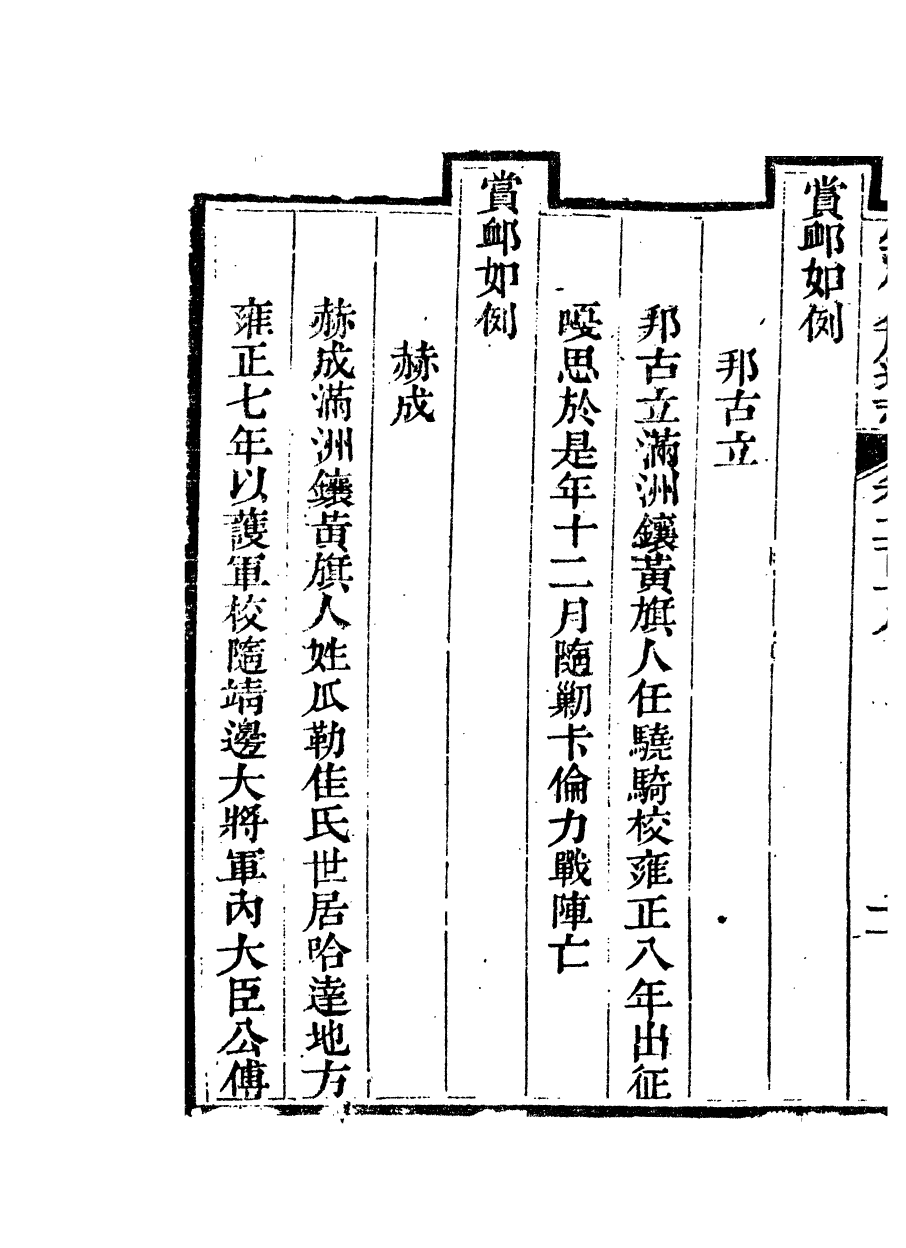 賞卹如例
邦古立
邦古立滿洲鑲黃旗人任驍騎校雍正八年出征
嗄思於是年十二月隨勦卡倫力戰陣亡
賞卹如例
赫成
赫成滿洲鑲黃旗人姓瓜勒佳氏世居哈達地方
雍正七年以護軍校隨靖邊大將軍內大臣公傅